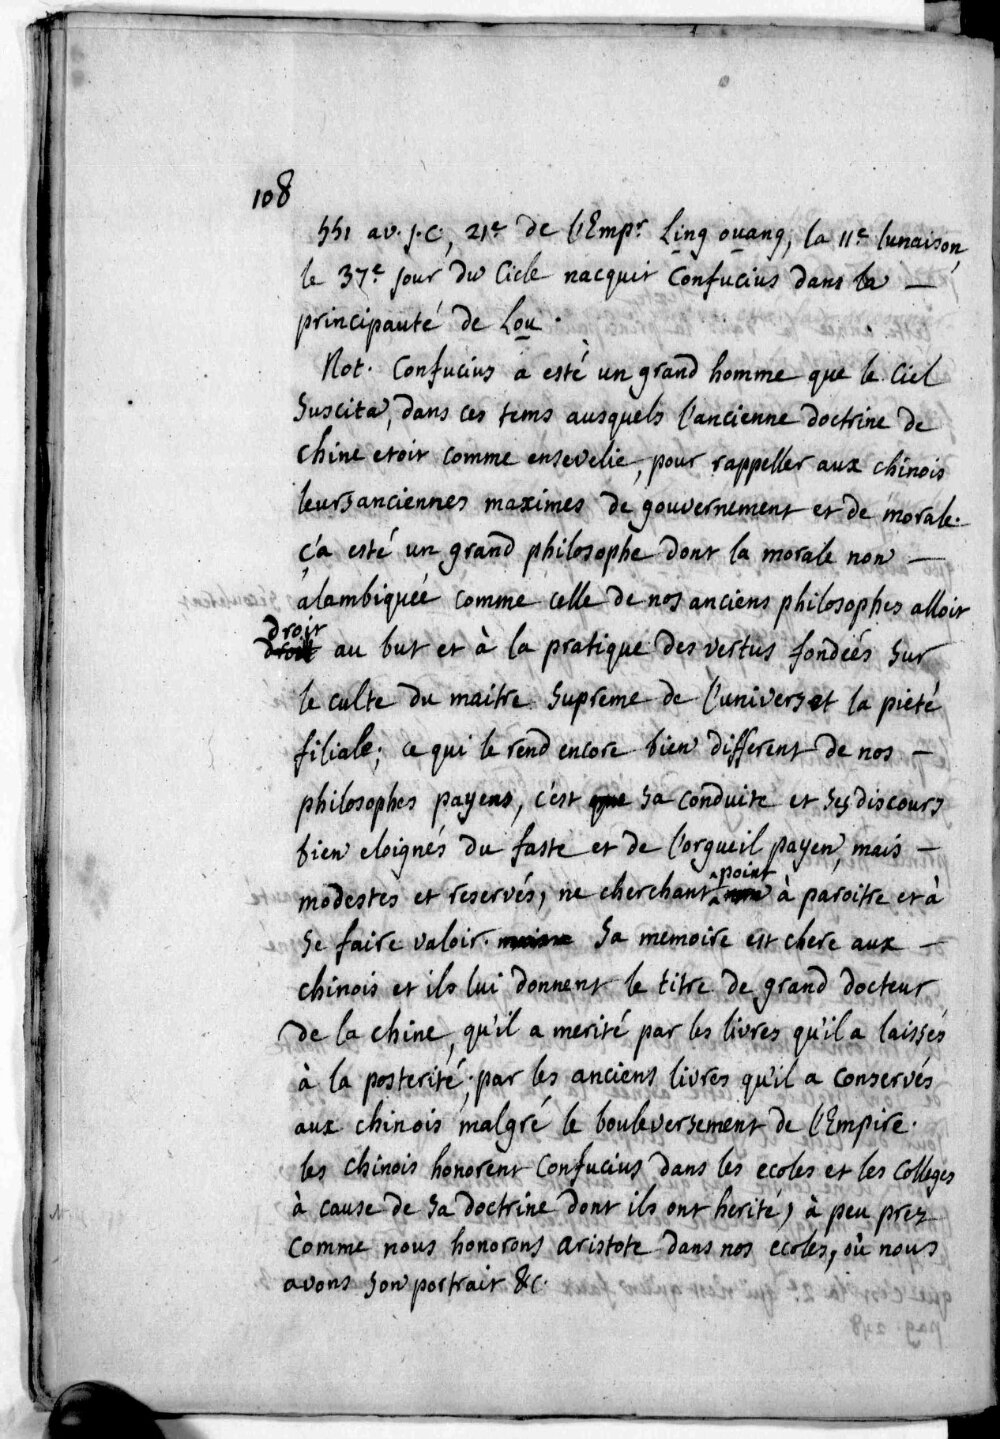 108
551 av. J.C., 21e de l'Empr Ling ouang, la 11e lunaison,
le 37e jour du Cicle nacquit Confucius dans la —
principauté de Lou.
Not. Confucius a esté un grand homme que le Ciel
suscita, dans ces tems ausquels l'ancienne doctrine de
Chine etoit comme ensevelie, pour rappeller aux chinois
leurs anciennes maximes de gouvernement et de morale.
ç'a esté un grand philosophe dont la morale non —
alambiquée comme celle de nos anciens philosophes alloit
droit
droit au but et à la pratique des vertus fondées sur
le culte du maitre supreme de l'univers et la piété
filiale; ce qui le rend encore bien different de nos —
philosophes payens, c'est que sa conduite et ses discours
bien eloignés du faste et de l'orgueil payen, mais —
point
modestes et reservés, ne cherchant à paroitre et à
se faire valoir. sa memoire est chere aux —
chinois et ils lui donnent le titre de grand docteur
de la chine, qu'il a merité par les livres qu'il a laissés
à la posterité; par les anciens livres qu'il a conservés
aux chinois malgré le bouleversement de l'Empire.
les chinois honorent Confucius dans les ecoles et les Colleges
à cause de sa doctrine dont ils ont herité, à peu prez
comme nous honorons aristote dans nos ecoles, où nous
avons son portrait &c.